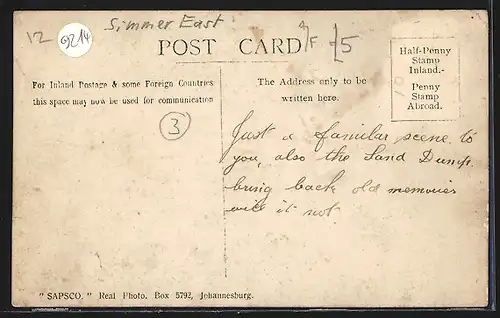 12
9214
Simmer East
POST CARD
F £5
Half-Penny
Stamp
Inland.-
Penny
Stamp
Abroad.
For Inland Postage & some Foreign Countries
this space may now be used for communication
The Address only to be
written here.
3
Just a familar scene to
you, also the Sand Dump.
bring back old memories
will it not.
"SAPSCO." Real Photo. Box 5792, Johannesburg.